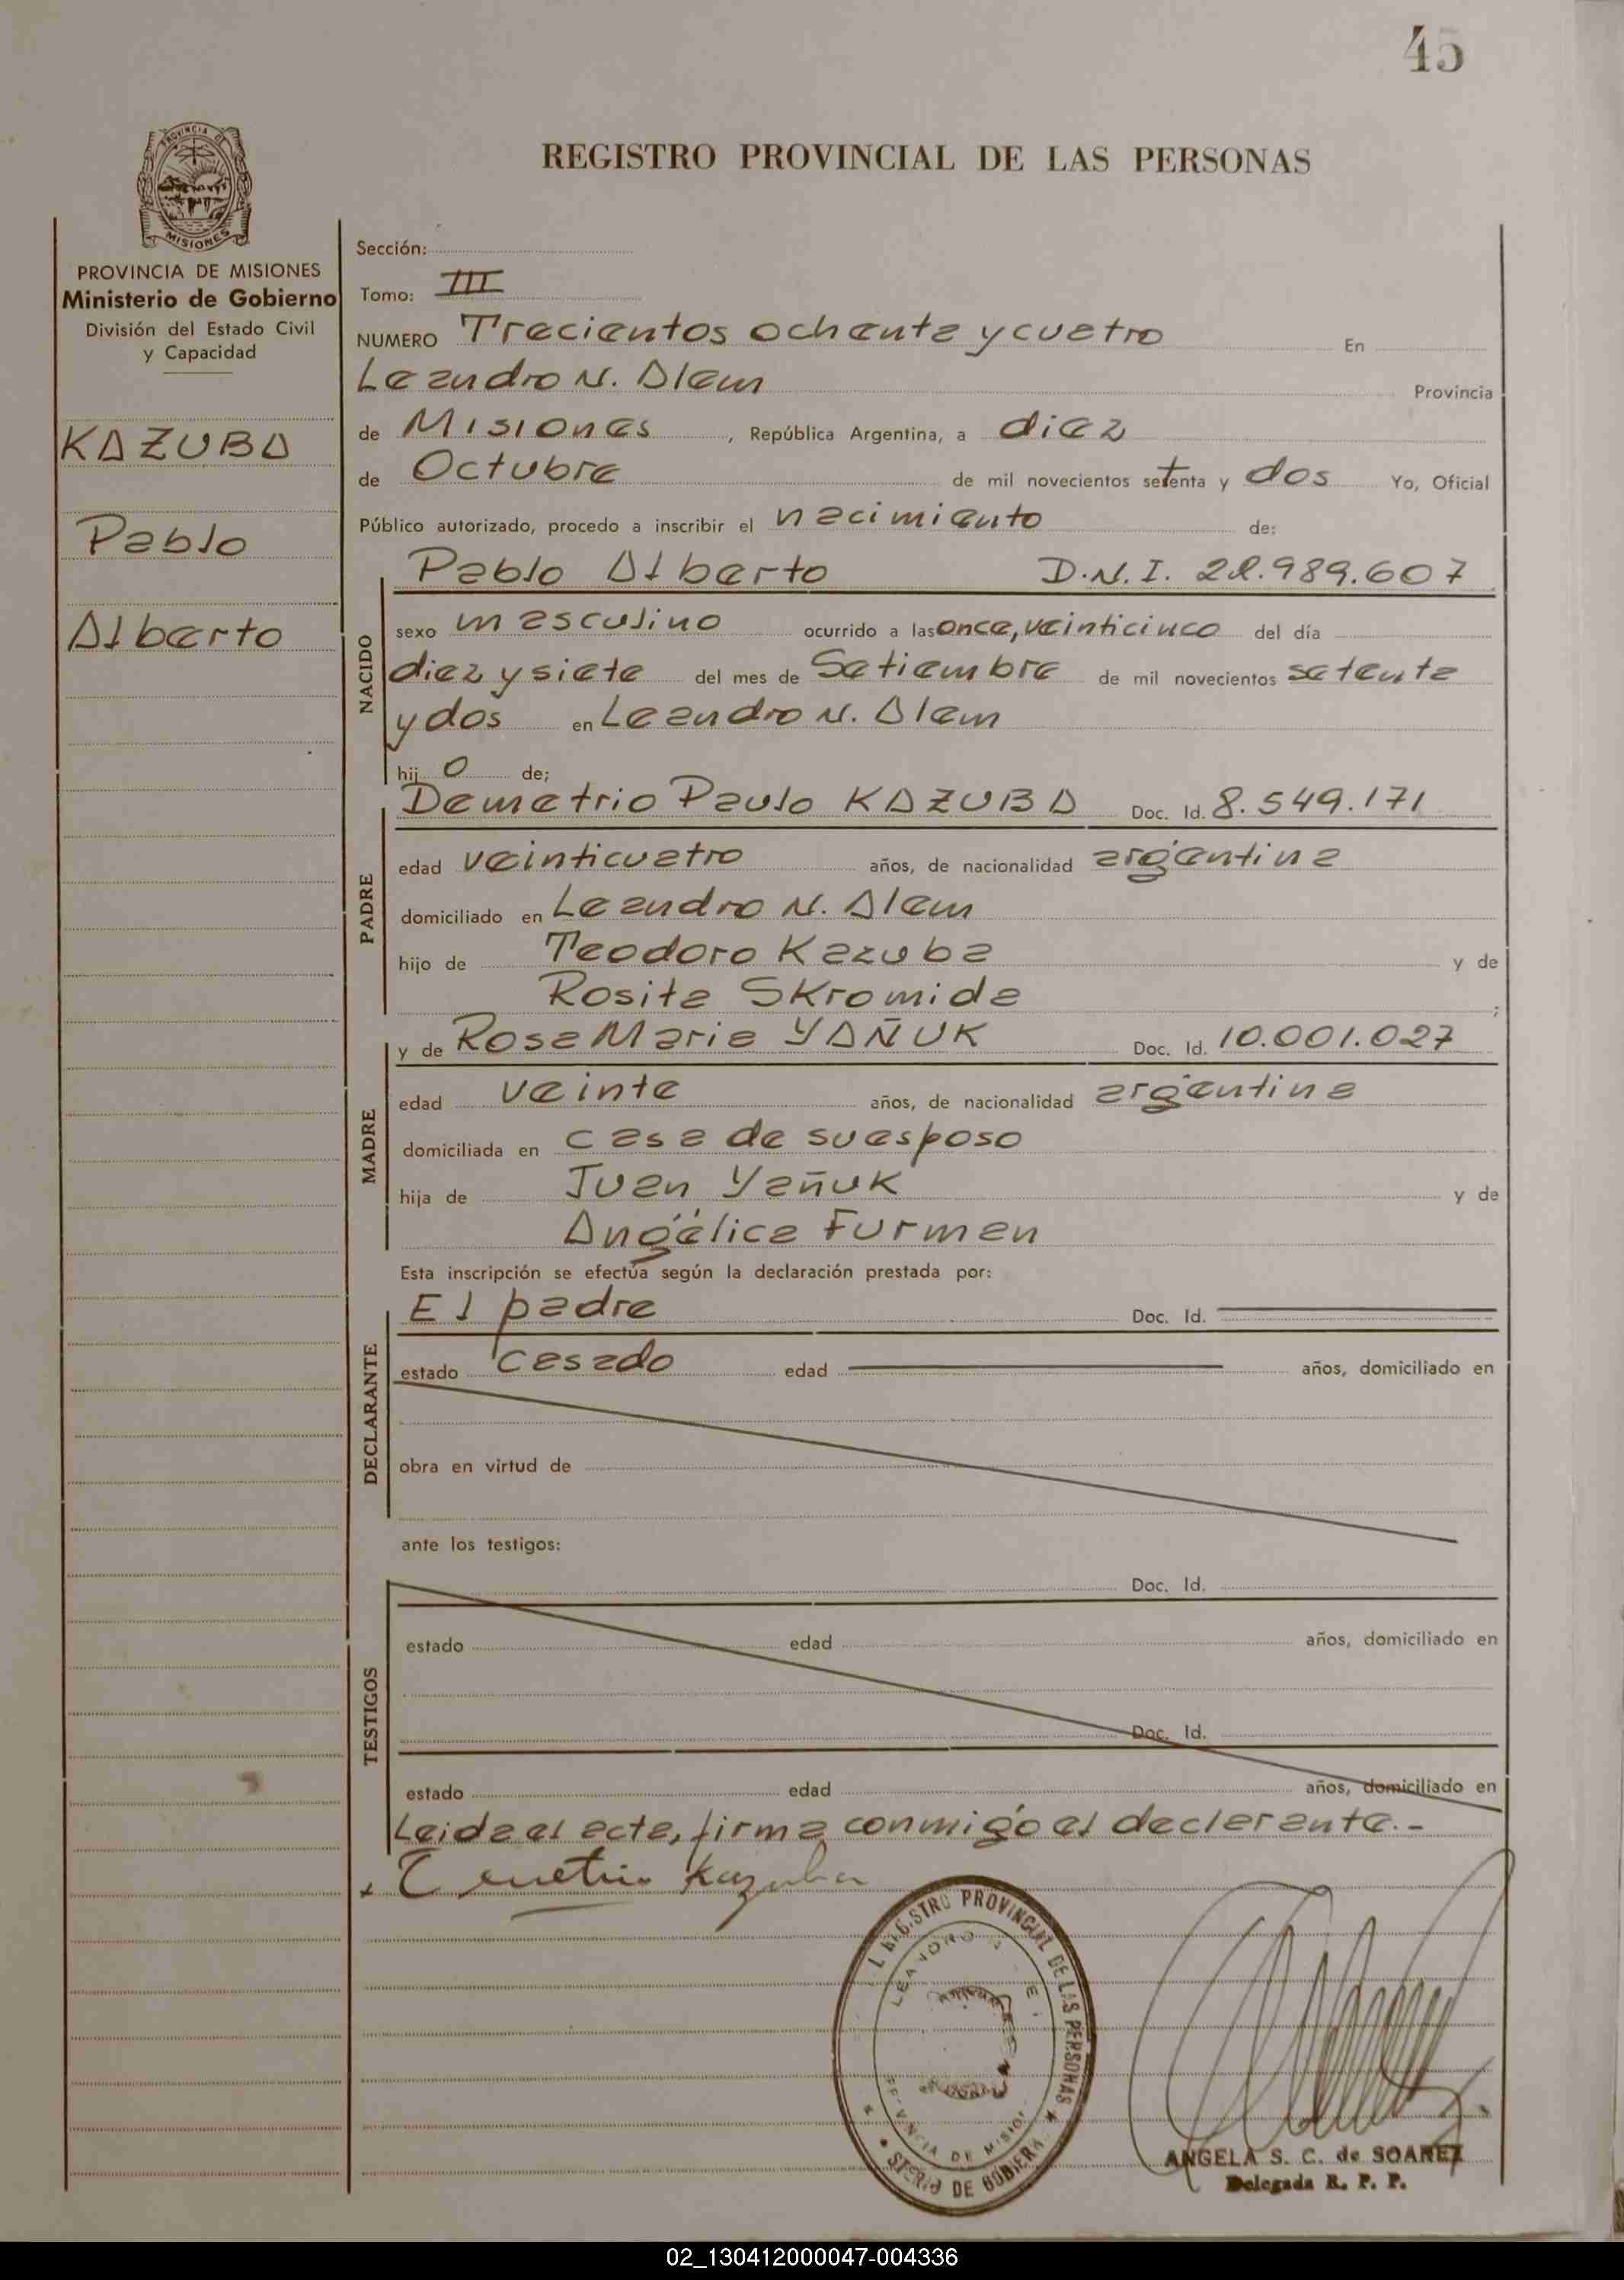 45
REGISTRO PROVINCIAL DE LAS PERSONAS
PROVINCIA DE
MISIONES
PROVINCIA DE MISIONES
Ministerio de Gobierno
División del Estado Civil
y Capacidad
KAZUBA
Pablo
Alberto
Sección:
Tomo: III
NUMERO Trecientos ochenta y cuatro En
Leandro N. Alem Provincia
de Misiones, República Argentina, a diez
de Octubre de mil novecientos setenta y dos Yo, Oficial
Público autorizado, procedo a inscribir el nacimiento de:
NACIDO
Pablo Alberto D.N.I. 22.989.607
sexo masculino ocurrido a las once, veinticinco del día
diez y siete del mes de Setiembre de mil novecientos setenta
y dos en Leandro N. Alem
hij o de;
PADRE
Demetrio Paulo KAZUBA Doc. Id. 8.549.171
edad veinticuatro años, de nacionalidad argentina
domiciliado en Leandro N. Alem
hijo de Teodoro Kazuba y de
Rosita Skromida ;
MADRE
y de Rosa Maria YAÑUK Doc. Id. 10.001.027
edad veinte años, de nacionalidad argentina
domiciliada en casa de su esposo
hija de Juan Yañuk y de
Angélica Furman
Esta inscripción se efectúa según la declaración prestada por:
DECLARANTE
El padre Doc. Id.
estado casado edad años, domiciliado en
obra en virtud de
ante los testigos:
TESTIGOS
Doc. Id.
estado edad años, domiciliado en
Doc. Id.
estado edad años, domiciliado en
Leida el acta, firma conmigo el declarante.-
Kazuba
REGISTRO PROVINCIAL DE LAS PERSONAS
LEANDRO N
DE GOBIER
ANGELA S. C. de SOAREZ
Delegada R. P. P.
02_130412000047-004336